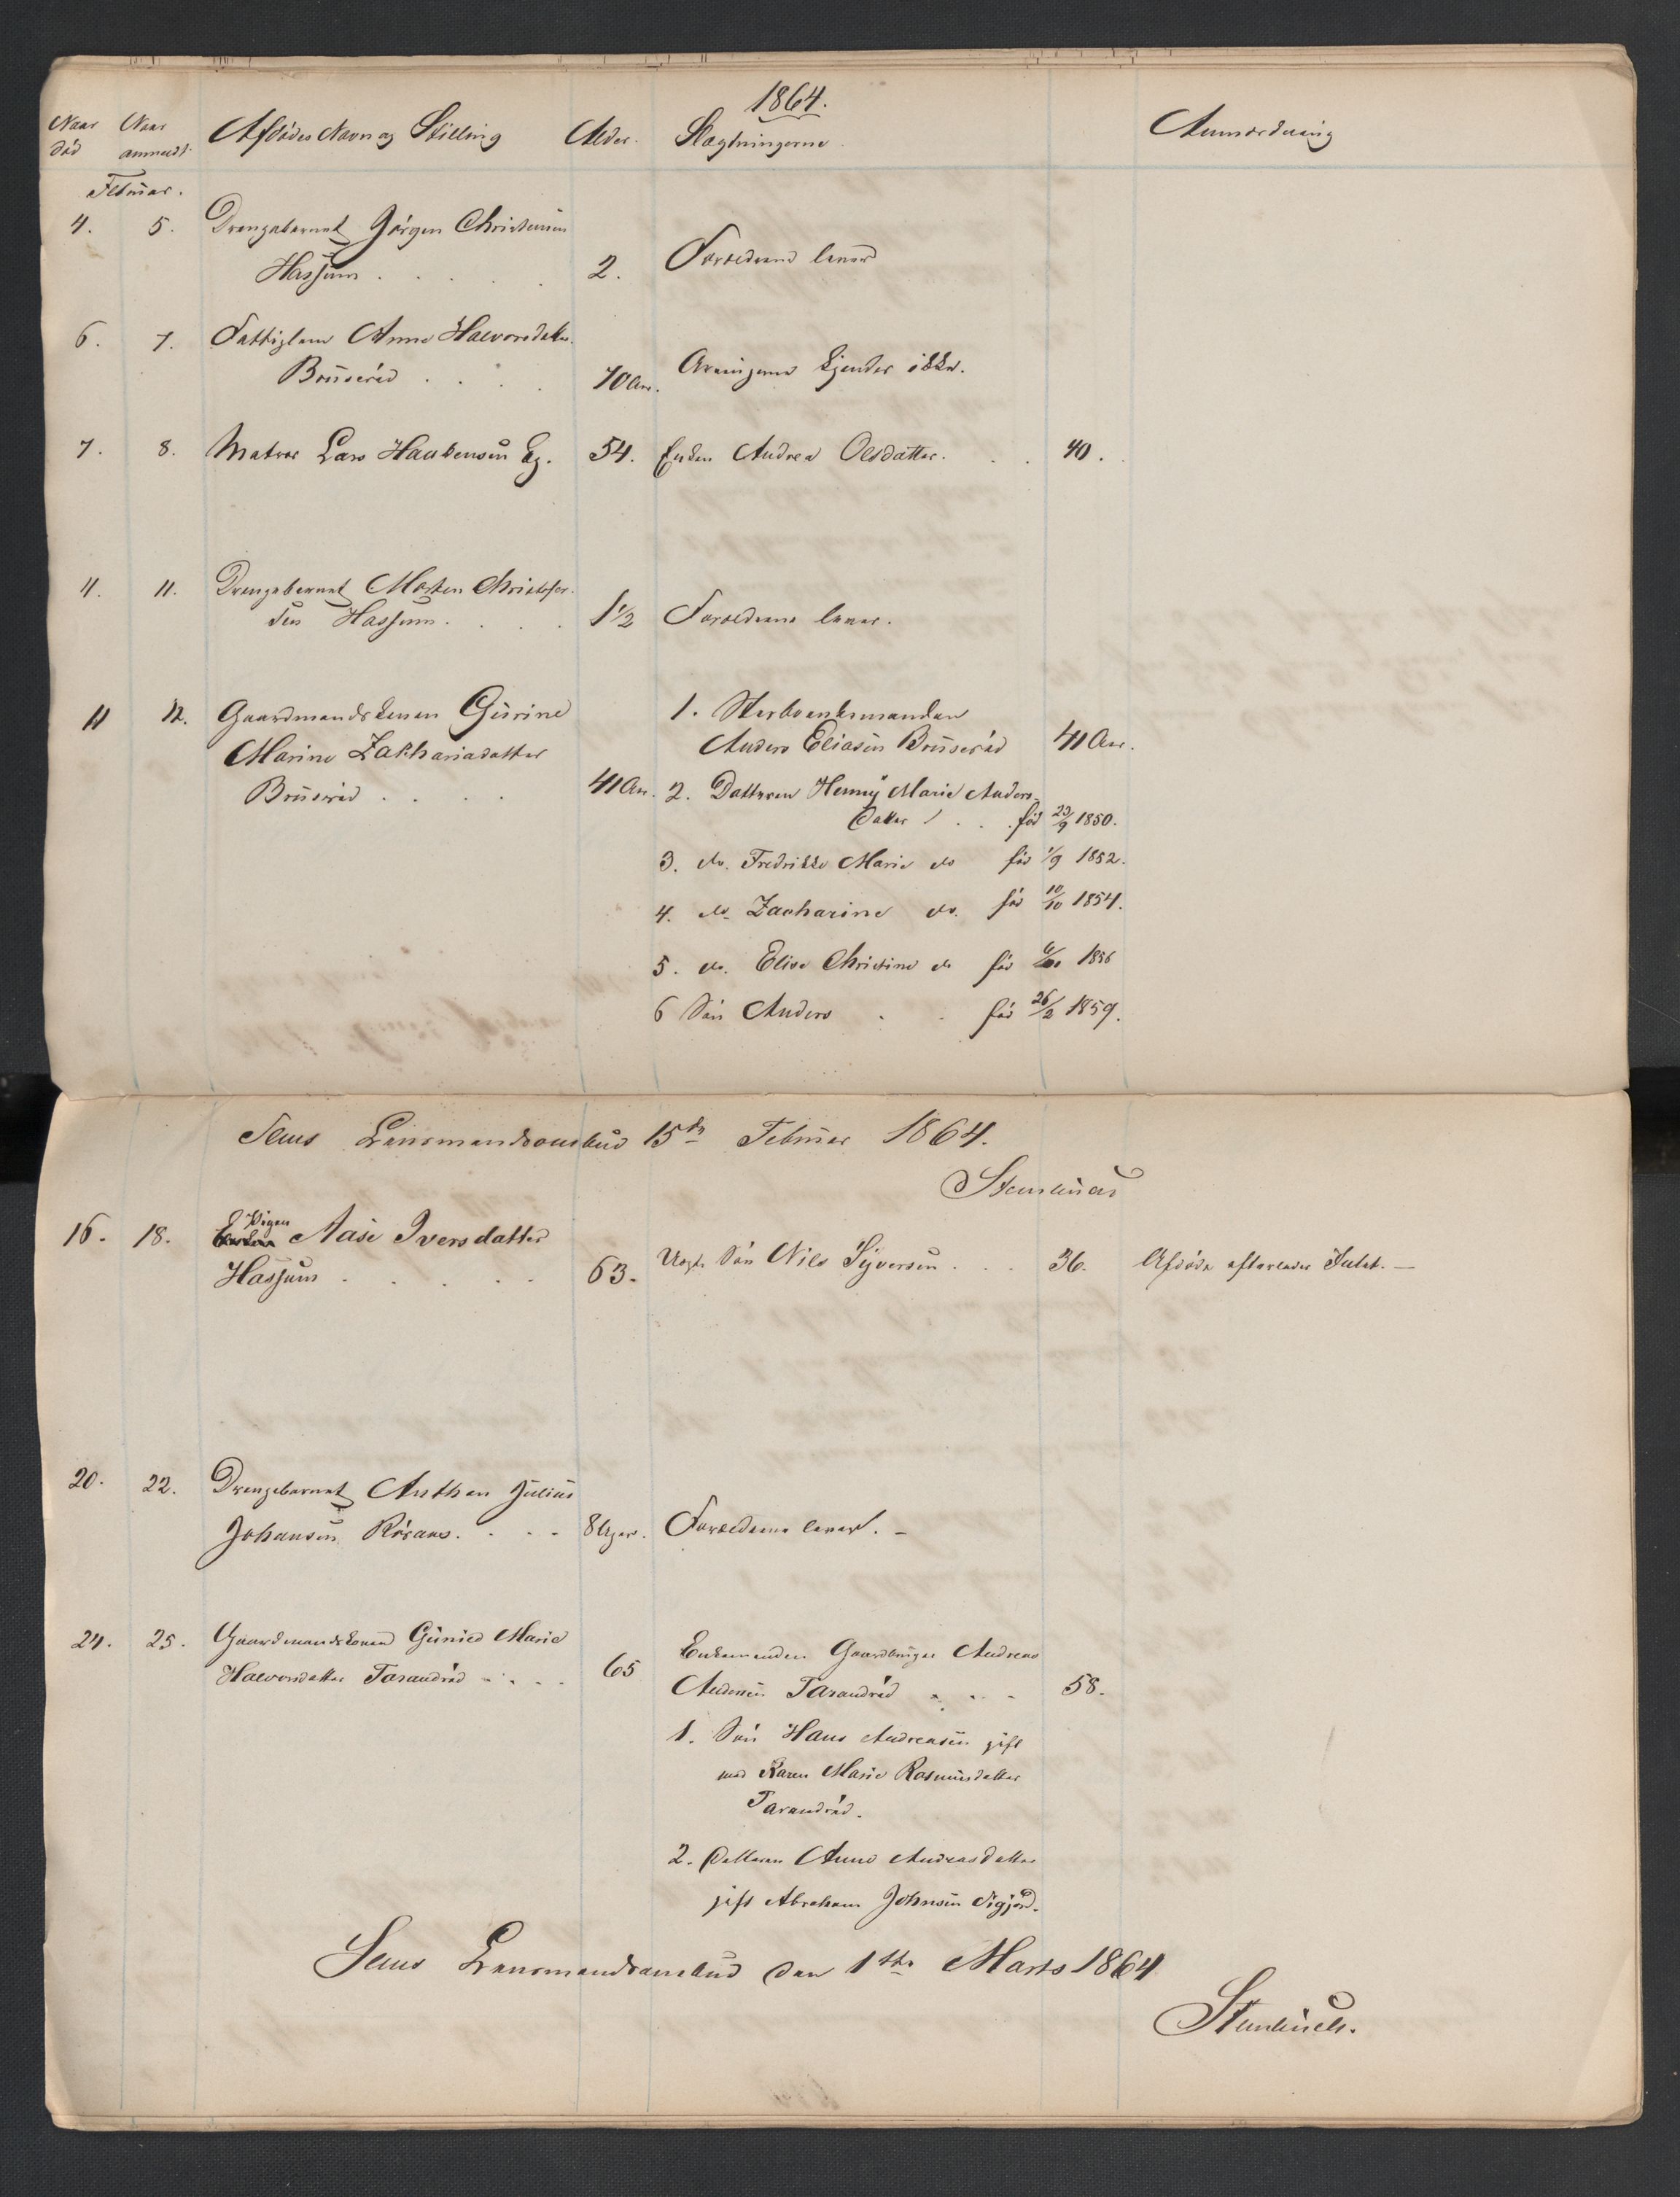 1864.
Naar Naar Afdødes Navn og Stilling Alder. Slægtningerne Anmærkning
død anmeldt.
Februar.
4. 5. Drengebarnet Jørgen Christensen
Hassum . . . . 2. Forældrene lever
6. 7. Fattiglem Anne Halvorsdatter
Brüserød . . . . 70 Aar. Arvingerne kjendes ikke.
7. 8. Matros Lars Haakensen Eg. 54. Enken Andrea Olsdatter. . . 40.
11. 11. Drengebarnet Morten Christofer-
sen Hassum. . . . 1½ Forældrene lever.
11 12. Gaardmandskonen Gürine
Marine Zakhariadatter
Brüserød . . . . 41 Aar.
1. Sterboenkemanden
Anders Eliasen Brüserød 41 Aar.
2. Datteren Henny Marie Anders-
datter . . . fød 23/9 1850.
3. do. Fredrikke Marie do fød 1/9 1852.
4. do. Zacharine do. fød 10/10 1854.
5. do. Elise Christine do fød 1856
6 Søn Anders . . fød 26/2 1859.
Sems Lensmandsombud 15de Februar 1864.
16. 18. Pigen Aase Iversdatter
Hassum . . . . . 63. Uægte Søn Nils Syversen . . . 36. Afdøde efterlader Intet. —
20. 22. Drengebarnet Anthon Julius
Johansen Røraas. . . . 8 Uger. Forældrene lever. —
24. 25. Gaardmandskonen Günild Marie
Halvorsdatter Tarandrød . . . . 65
Enkemanden Gaardbruger Andreas
Andersen Tarandrød . . . 58.
1. Søn Hans Andreasen gift
med Karen Marie Rasmusdatter
Tarandrød.
2. Datteren Anne Andreasdatter
gift Abraham Johnsen
Sems Lensmandsombud den 1ste Marts 1864